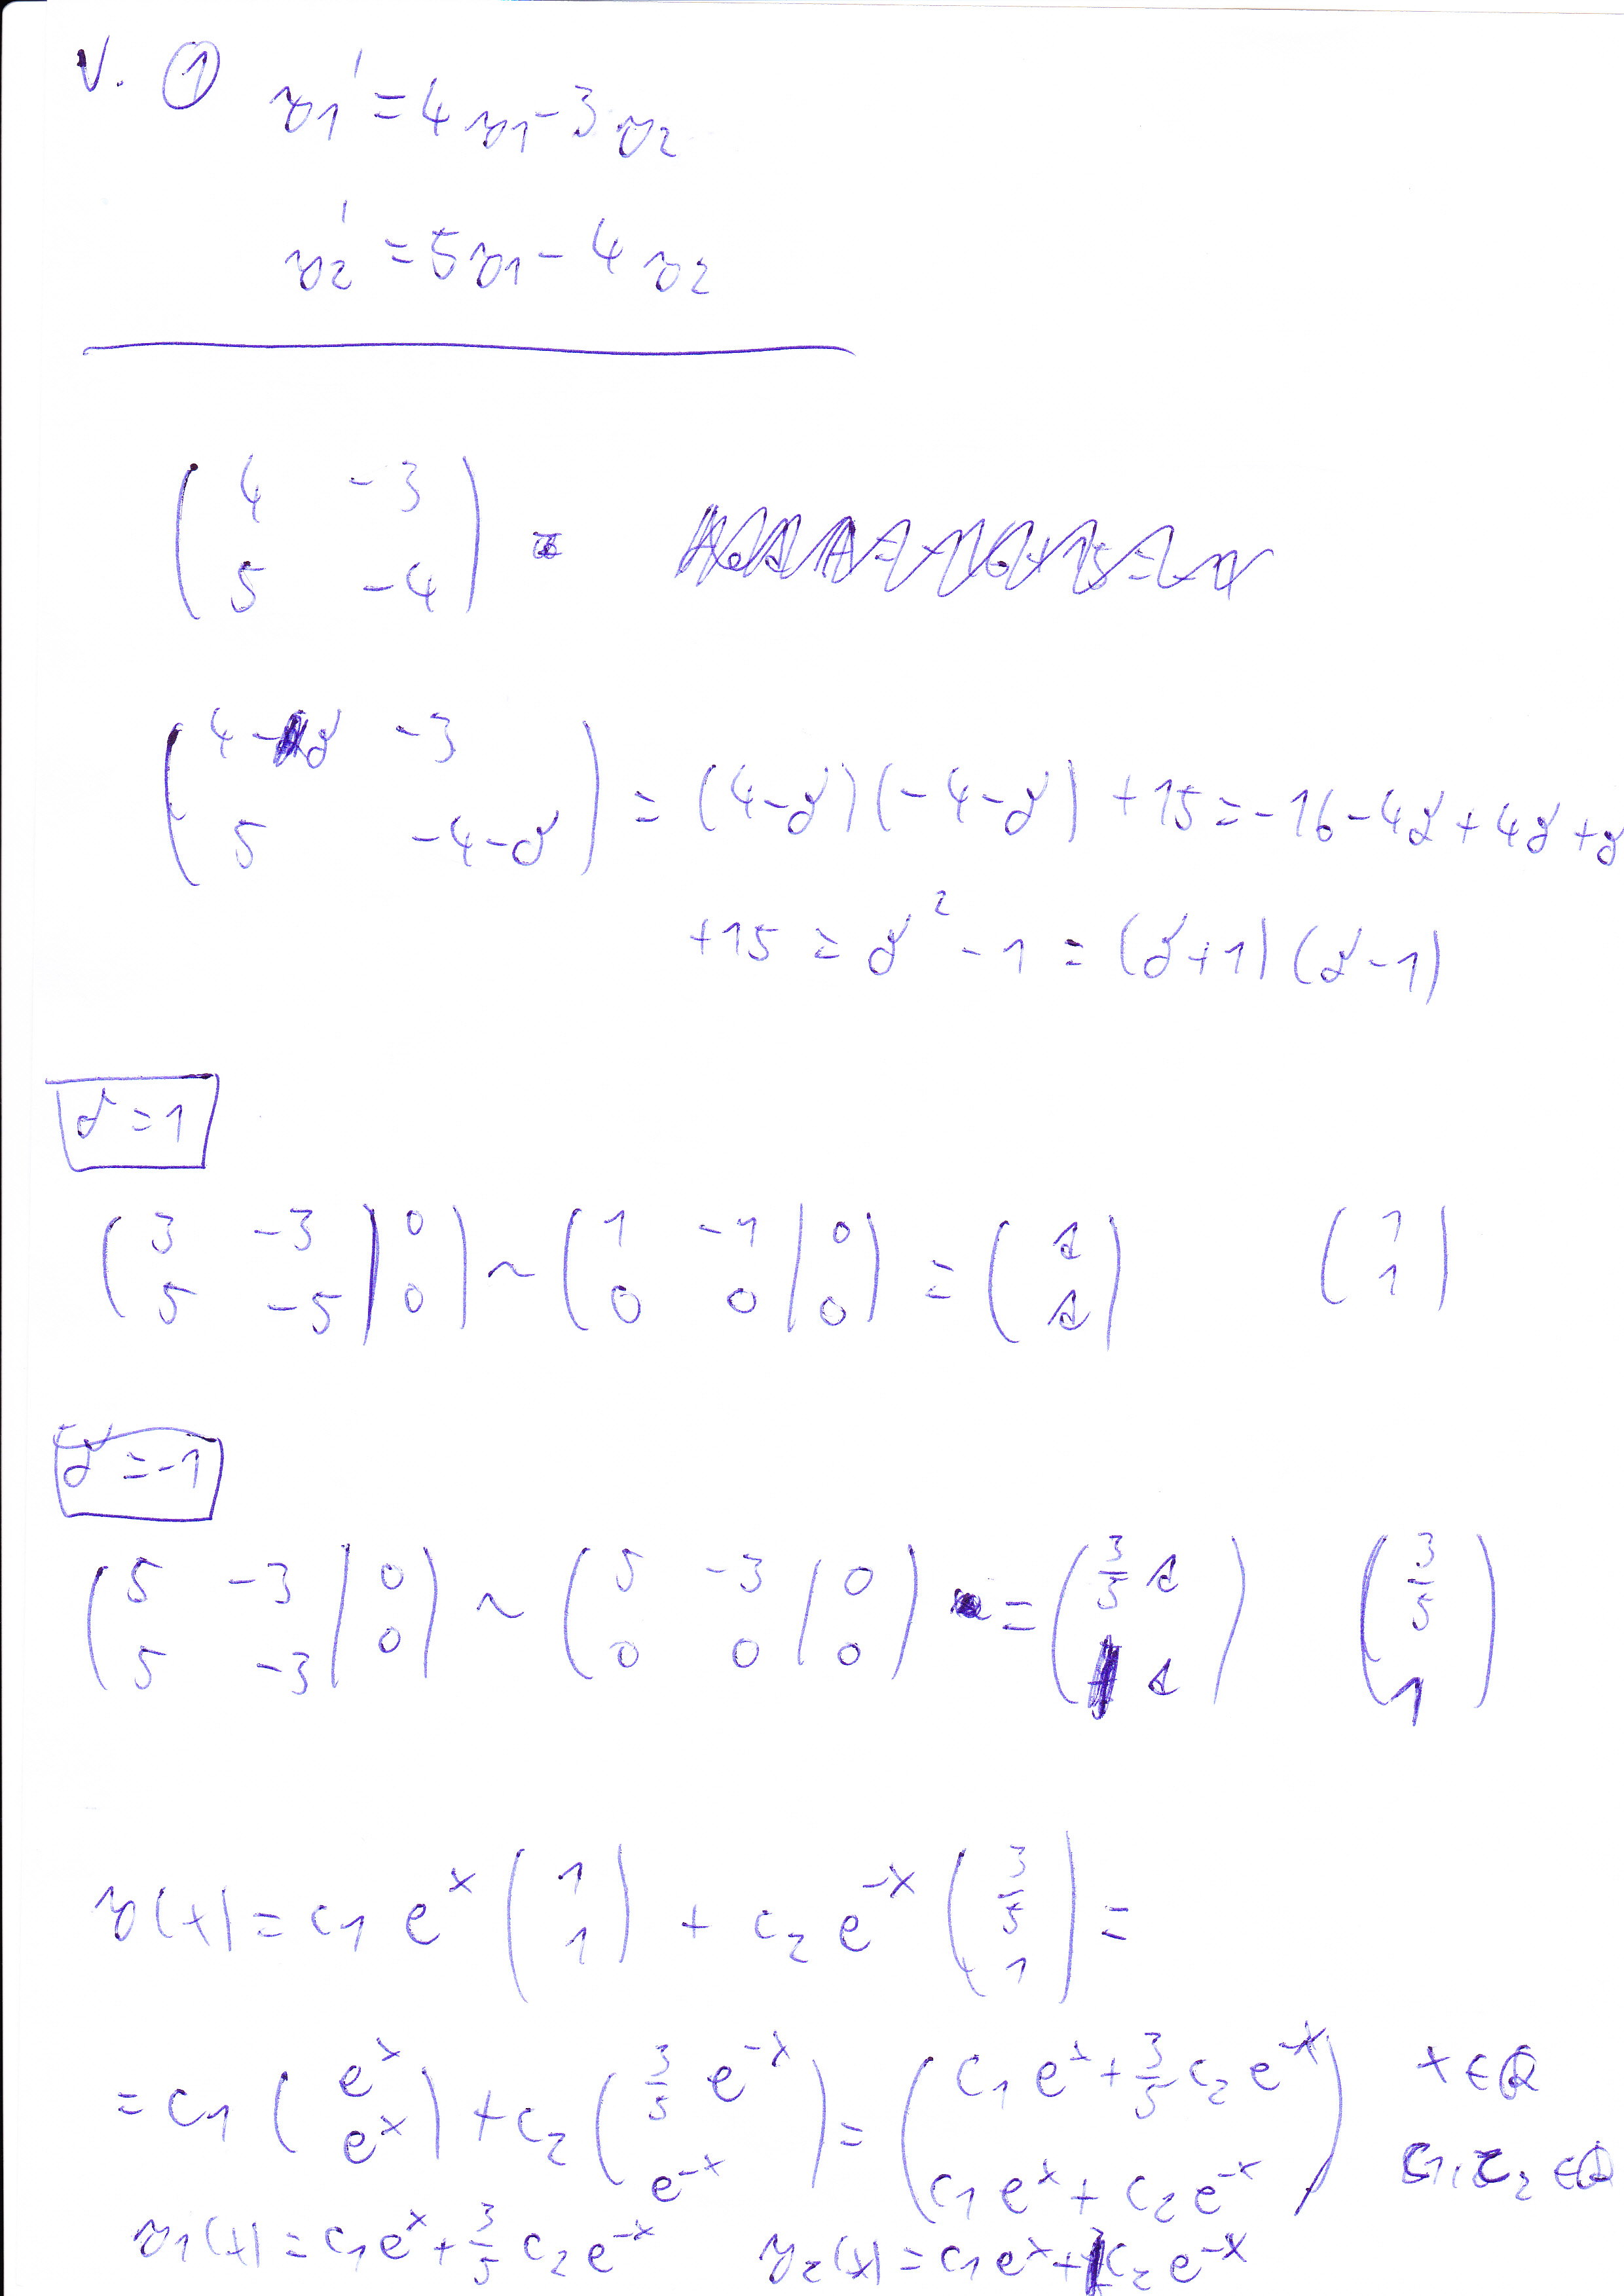 V. ① y1' = 4y1 - 3y2
y2' = 5y1 - 4y2
( 4 -3 ; 5 -4 ) =
( 4-λ -3 ; 5 -4-λ ) = (4-λ)(-4-λ) +15 = -16 - 4λ + 4λ + λ
+15 = λ² - 1 = (λ+1)(λ-1)
λ = 1
( 3 -3 | 0 ; 5 -5 | 0 ) ~ ( 1 -1 | 0 ; 0 0 | 0 ) = ( s ; s ) ( 1 ; 1 )
λ = -1
( 5 -3 | 0 ; 5 -3 | 0 ) ~ ( 5 -3 | 0 ; 0 0 | 0 ) = ( 3/5 s ; s ) ( 3/5 ; 1 )
y(x) = c1 e^x ( 1 ; 1 ) + c2 e^-x ( 3/5 ; 1 ) =
= c1 ( e^x ; e^x ) + c2 ( 3/5 e^-x ; e^-x ) = ( c1 e^x + 3/5 c2 e^-x ; c1 e^x + c2 e^-x ) x ∈ R
c1, c2 ∈ R
y1(x) = c1 e^x + 3/5 c2 e^-x y2(x) = c1 e^x + c2 e^-x